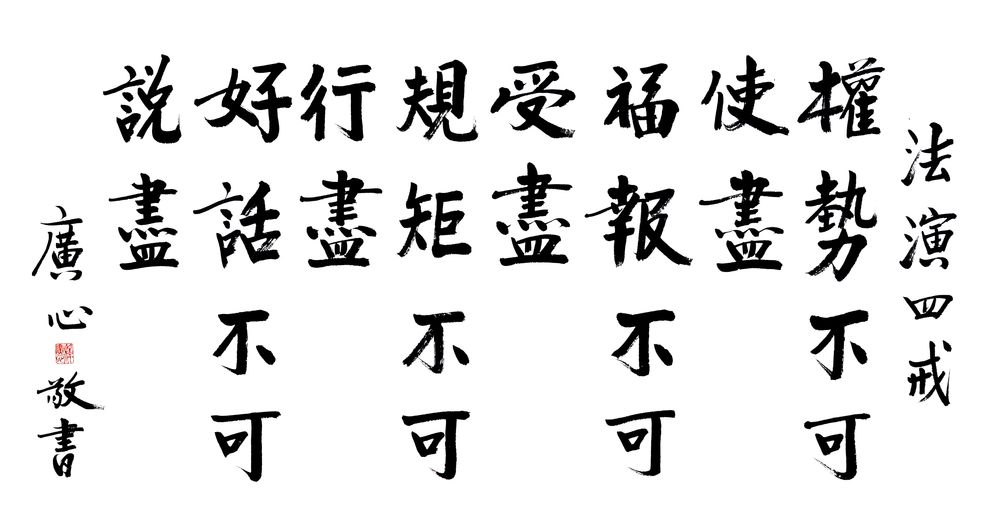 法演四戒
權勢不可
使盡
福報不可
受盡
規矩不可
行盡
好話不可
說盡
廣心敬書